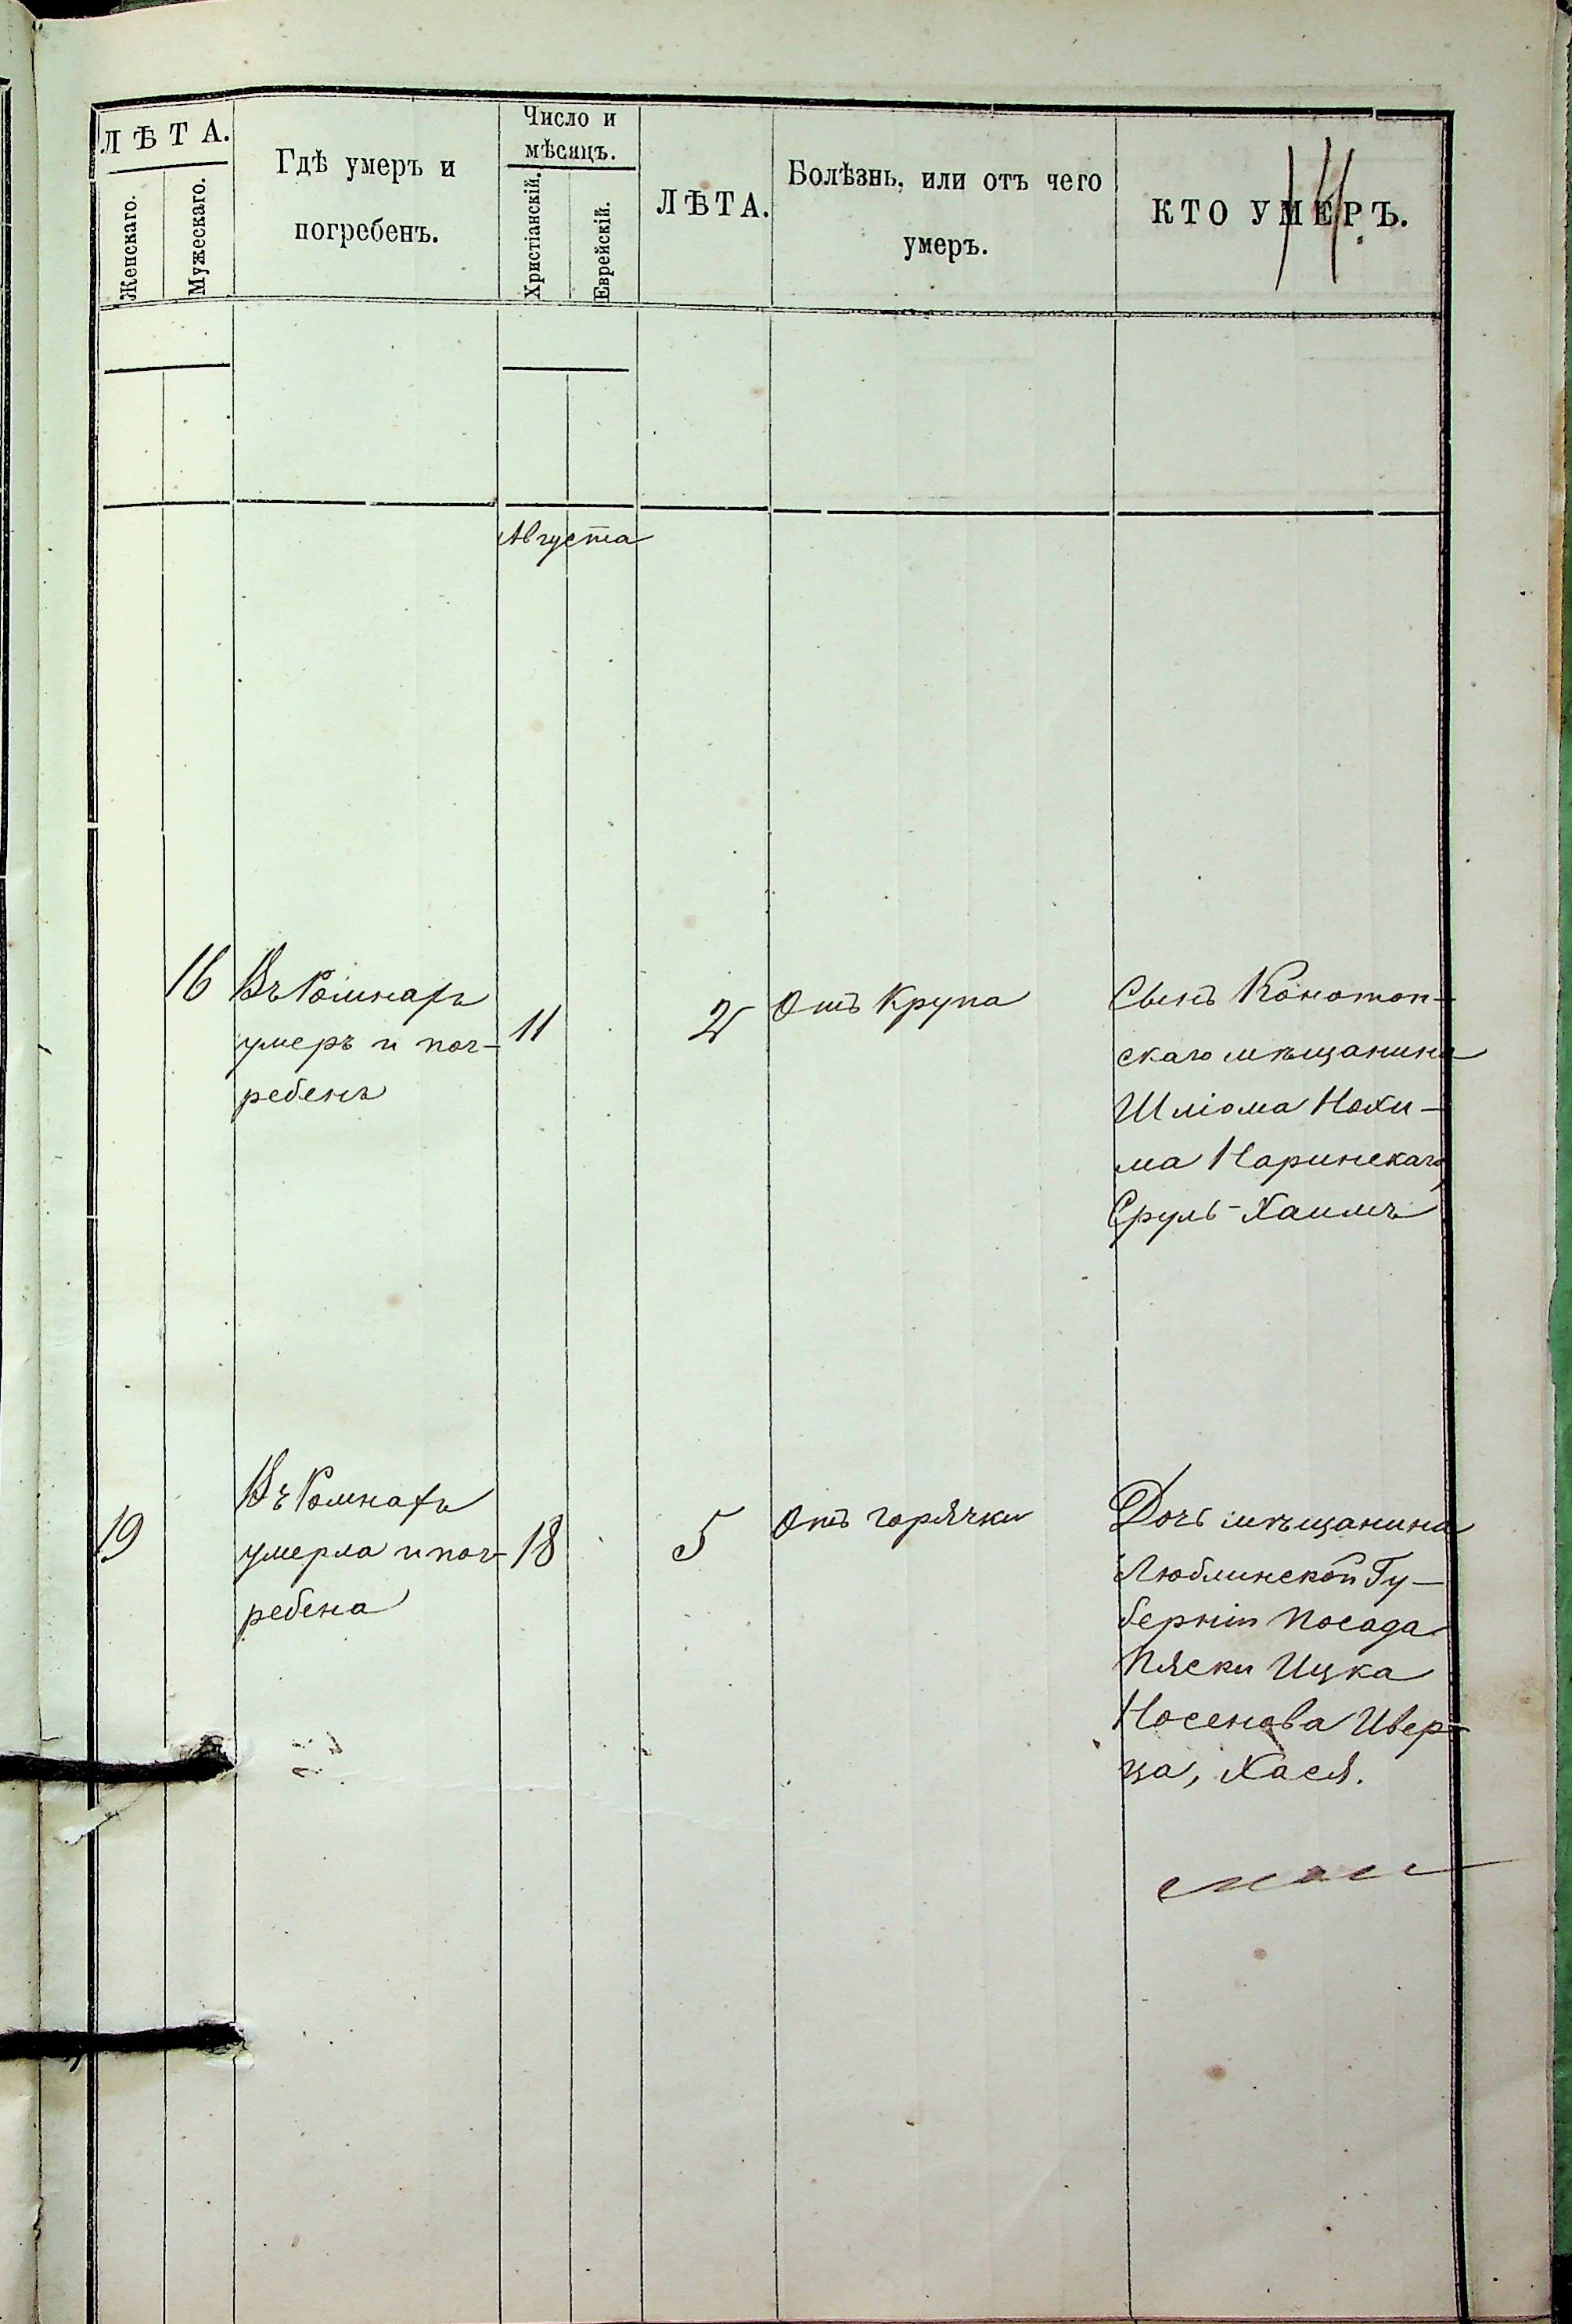 ЛѢТА.
Женскаго.
Мужескаго.
Гдѣ умеръ и
погребенъ.
Число и
мѣсяцъ.
Христіанскій.
Еврейскій.
ЛѢТА.
Болѣзнь, или отъ чего
умеръ.
КТО УМЕРЪ.
Августа
16
Въ Ромнахъ
умеръ и пог-
ребенъ
11
2
Отъ Крупа
Сынъ Конотоп-
скаго мѣщанина
Шліома Нохи-
ма Наринскаго
Сруль-Хаимъ
19
Въ Ромнахъ
умерла и пог-
ребена
18
5
Отъ горячки
Дочь мѣщанина
Люблинской Гу-
берніи Посада
Пяски Ицка
Носенова
Хася.